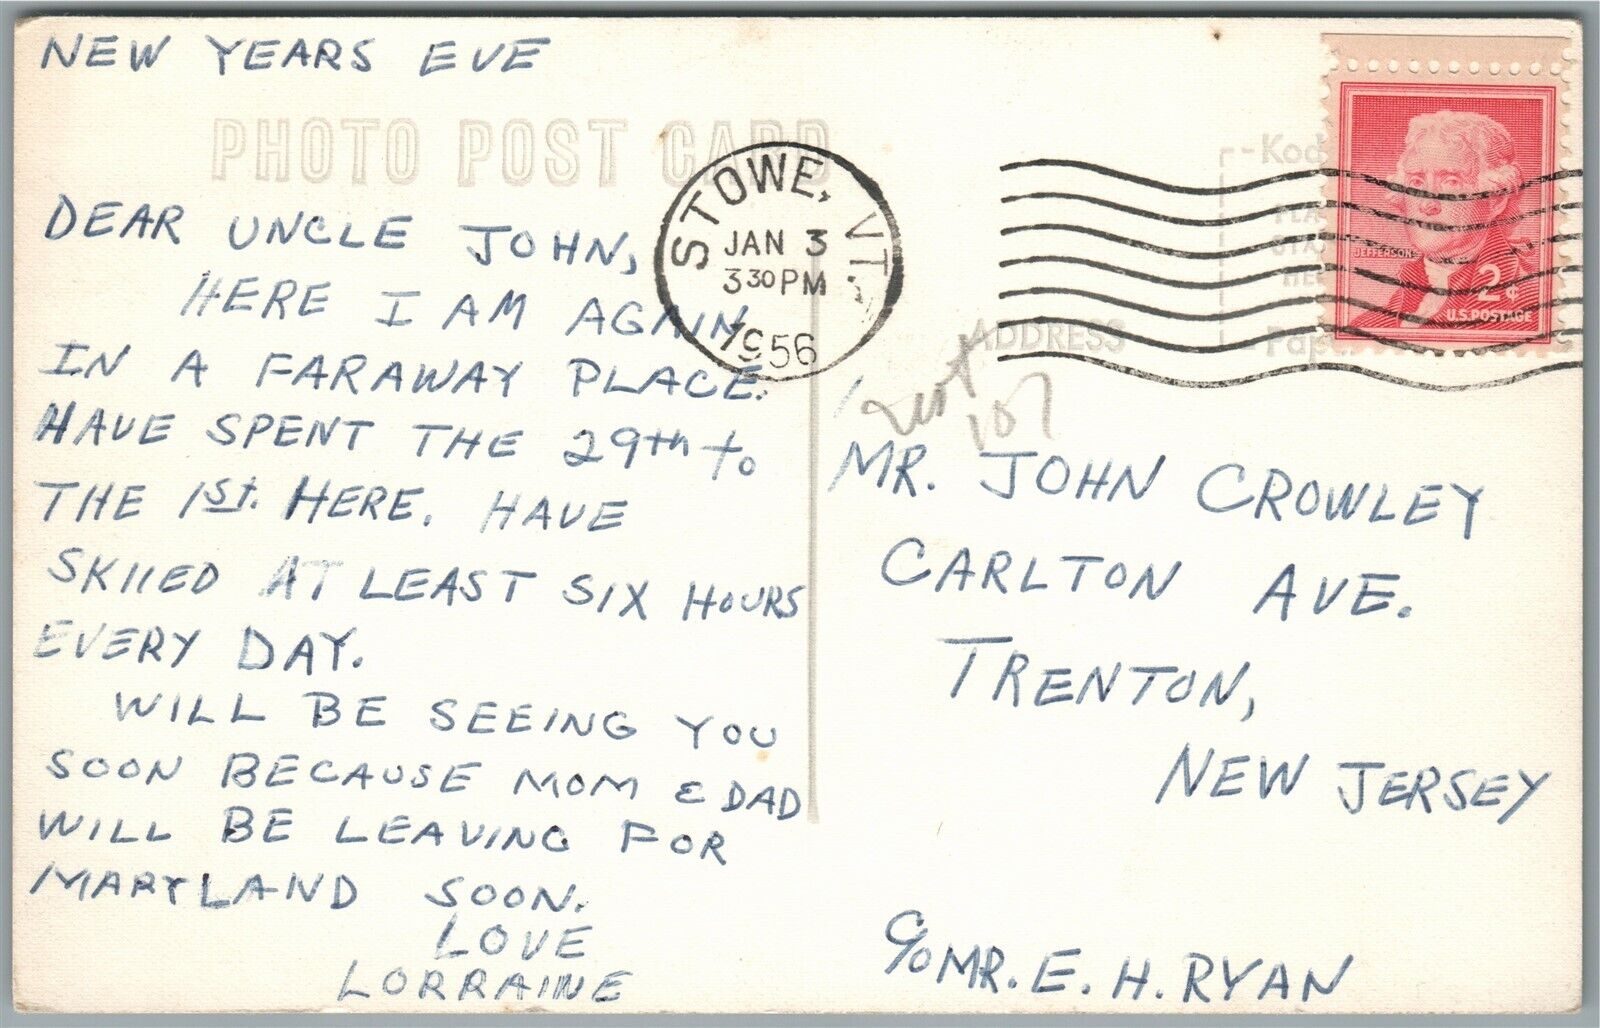 NEW YEARS EVE
PHOTO POST CARD
DEAR UNCLE JOHN,
HERE I AM AGAIN
IN A FARAWAY PLACE.
HAVE SPENT THE 29th to
THE 1st. HERE. HAVE
SKIIED AT LEAST SIX HOURS
EVERY DAY.
WILL BE SEEING YOU
SOON BECAUSE MOM & DAD
WILL BE LEAVING FOR
MARYLAND SOON.
LOVE
LORRAINE
STOWE, VT.
JAN 3
3 30 PM
1956
ADDRESS
JEFFERSON
2¢
U.S. POSTAGE
107
MR. JOHN CROWLEY
CARLTON AVE.
TRENTON,
NEW JERSEY
C/O MR. E. H. RYAN